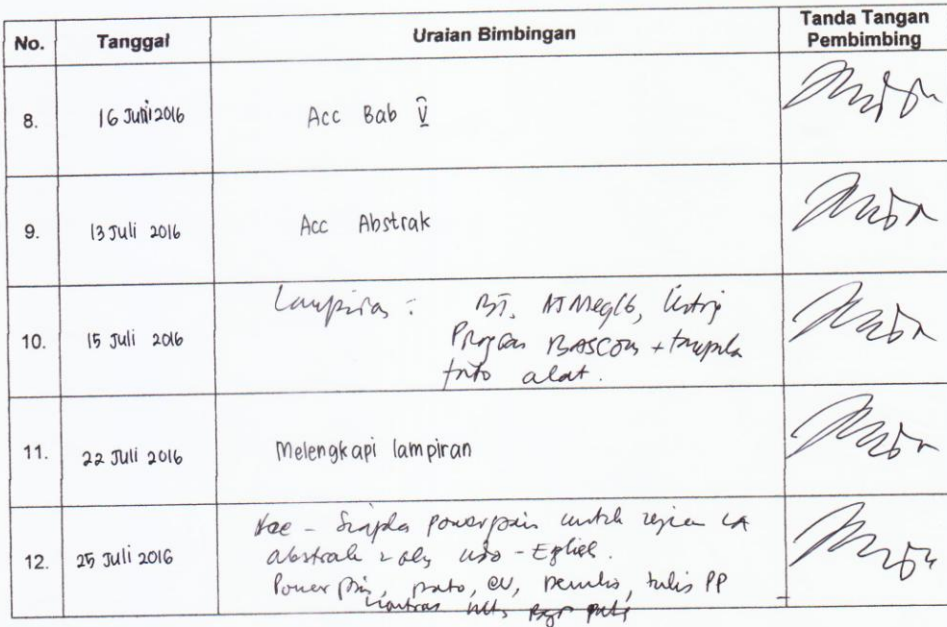 No. Tanggal Uraian Bimbingan Tanda Tangan
Pembimbing
8. 16 Juni 2016 Acc Bab V
9. 13 Juli 2016 Acc Abstrak
10. 15 Juli 2016 Lampiran : BT, ATMeg16, Listing
Program BASCOM + tampilan
foto alat.
11. 22 Juli 2016 Melengkapi lampiran
12. 25 Juli 2016 Acc - Siapkan powerpoin untuk ujian LA
abstrak 2 indo -
Power poin, foto, CV, penulis, tulis PP
kontras